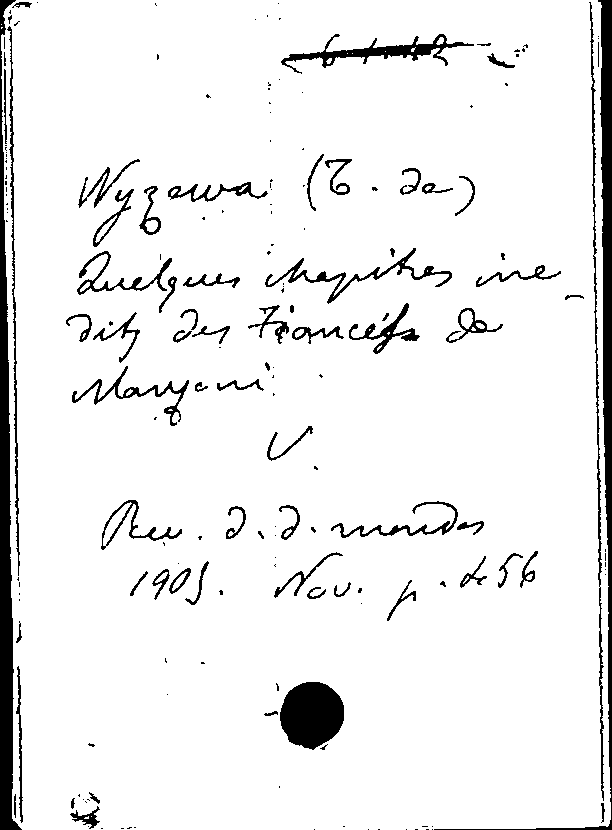 Wyzewa (T. de)
Quelques chapitres iné-
dits des Fiancés de
Manzoni
V.
Rev. d. d. mondes
1905. Nov. p. 456